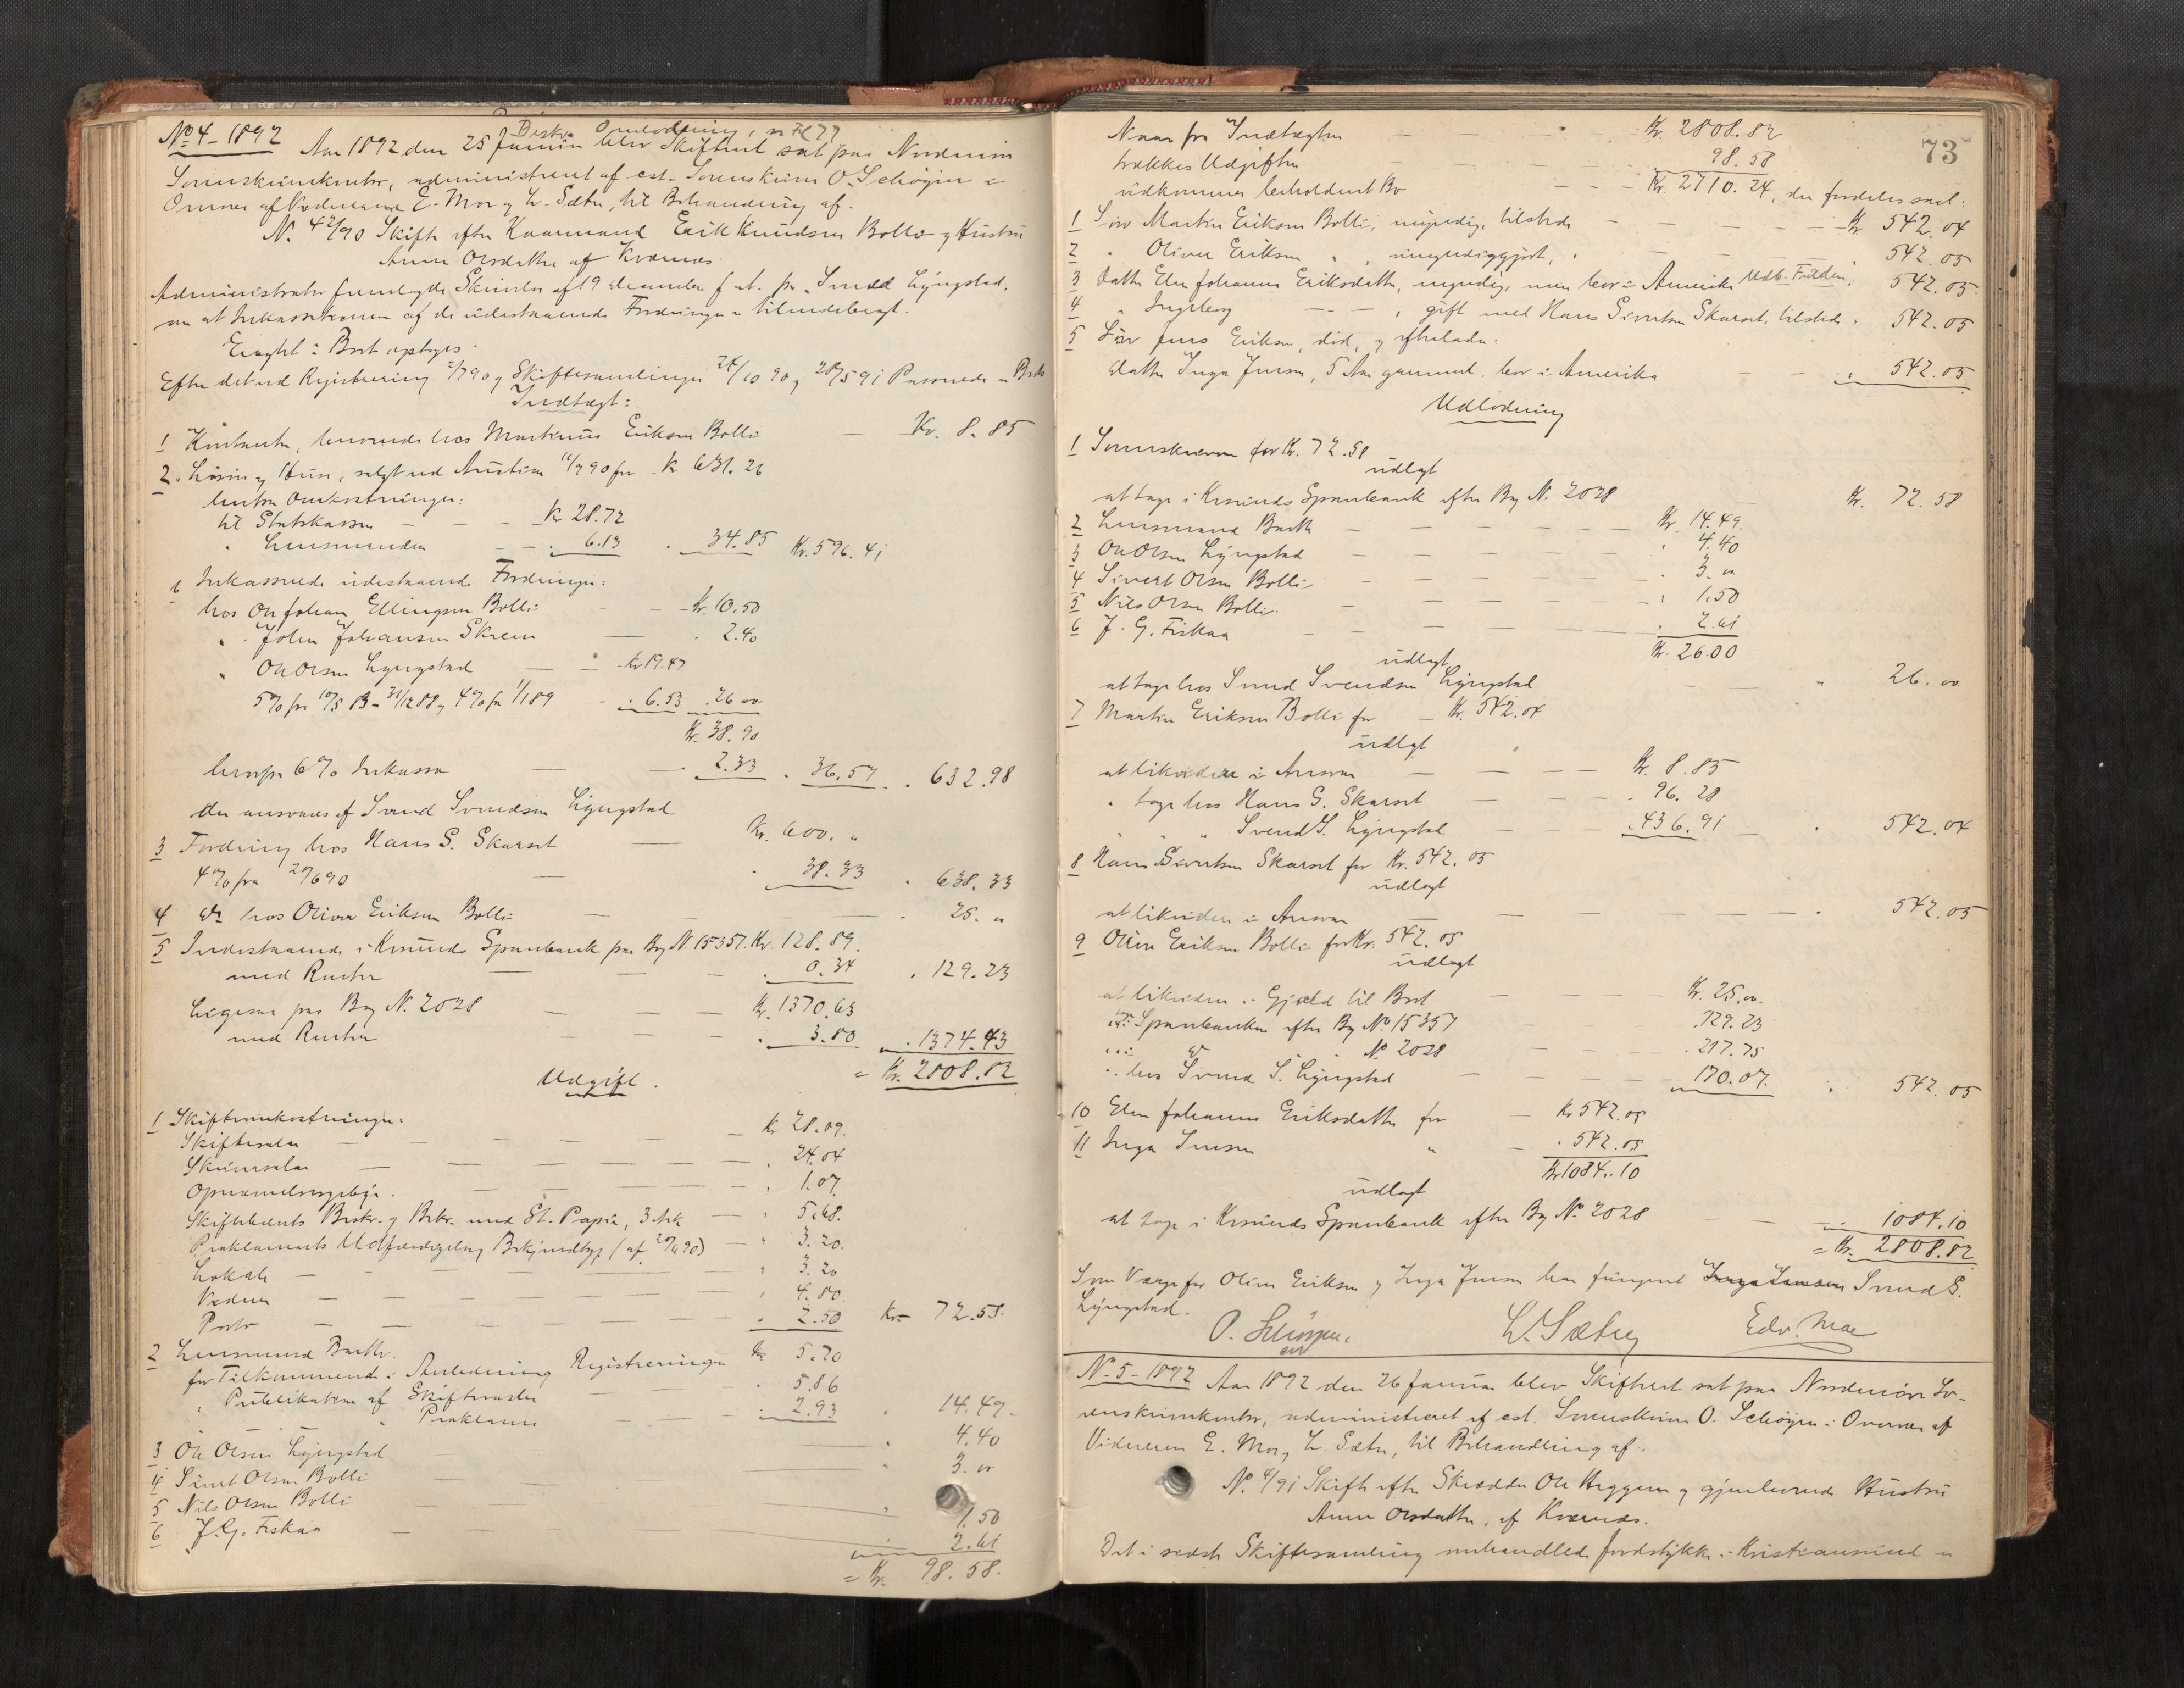 No 4 - 1892
Aar 1892 den 25 Januar blev Skifteret sat paa Nordmøre
Sorenskriverkontor, administreret af cst. Sorenskriver O. Schøyen i
Overvær af Vidnerne E. Moe og L. Sæter, til Behandling af.
N. 42/90 Skifte efter Kaarmand Erik Knudsen Bolli og Hustru
Anne Olsdatter af Kvernæs.
Administrator fremlagde Skrivelse af 19 december f. A. fra Svend Lyngstad,
om at Inkassationen af de udestaaende Fordringer er tilendebragt.
Eragtet: Boet optages.
Efter det ved Registrering 2/7 90 og Skiftesamlinger 24/10 90 og 28/5 91 Passerede er Boets
Indtægt:
1 Kontanter, beroende hos Martinus Eriksen Bolli — Kr. 8.85
2. Løsøre og Huse, solgt ved Auktion 11/7 90 for Kr 631.26
herfra Omkostninger:
til Statskassen - - - Kr 28.72
" Lensmanden - - . 6.13 . 34.85 Kr. 596.41
6 Inkasserede udestaaende Fordringer:
hos Ole Johan Ellingsen Bolli - - Kr. 10.50
" John Johansen Skrem — . 2.40
" Ole Olsen Lyngstad — - Kr 19.47
5% fra 10/5 83 - 31/12 88 og 4% fra 1/1 89 - . 6.53 . 26 00
Kr. 38.90
herfra 6% Inkasso — . 2.33 . 36.57 . 632.98
der ansvares af Svend Svendsen Lyngstad
3 Fordring hos Hans S. Skarset — Kr. 600. "
4% fra 20/6 90 — . 38.33 . 638.33
4 Do hos Oliver Eriksen Bolli — — — . 25. "
5 Indestaaende i Krsunds Sparebank paa Bog N. 15357. Kr. 128.89.
med Renter — — . 0.34 . 129.23
Ligesaa paa Bog N. 2028 — — Kr. 1370.63
med Renter — — . 3.80 . 1374.43
= Kr. 2808.82
Udgift.
1 Skifteomkostninger:
Skiftesalær — — Kr 28.09.
Skriversalær — — — . 24.04
Opnævnelsesgebyr. — — — . 1.07
Skifteforrets Beskr. og Bekr. med St. Papir, 3 Ark — " 5.68.
Proklamaets Udfærdigelse og Bekjendtgj. (af 20/6 90) — " 3.20.
Lokale — — " 3.20
Vidner — — — " 4.80.
Porto — — — . 2.50 Kr. 72.58.
2 Lensmand Barth.
for Tilkommende i Anledning Registreringen Kr 5.70
" Publikation af Skiftesamler — . 5.86
" " Proklama — — . 2.93 . 14.49.
3 Ole Olsen Lyngstad — " 4.40
4 Sivert Olsen Bolli — " 3. 00
5 Nils Olsen Bolli — " 1.50
6 J. G. Fiskaa — 2.61
= Kr. 98.58.
73
Naar fra Indtægten — — Kr. 2808.82
trækkes Udgiften — — 98.58
udkommer beholdent Bo - - - Kr. 2710.24, der fordeles saal:
1 Søn Martin Eriksen Bolli, myndig, tilstede — - - - Kr. 542.04
2 " Oliver Eriksen " , umyndiggjort, " — - " 542.05
3 Datter Elen Johanna Eriksdatter, myndig, men bor i Amerika " 542.05
4 " Ingeborg — - , gift med Hans Sivertsen Skarset, tilstede . 542.05
5 Søn Jens Eriksen, død, og efterladen:
datter Inga Jensen, 5 Aar gammel, bor i Amerika — - . 542.05
Udlodning
1 Sorenskriveren for Kr. 72.58
udlagt
at tage i Krsunds Sparebank efter Bog N. 2028 Kr. 72.58
2 Lensmand Barth — — Kr. 14.49.
3 Ole Olsen Lyngstad — — . 4.40
4 Sivert Olsen Bolli — — . 3. 00
5 Nils Olsen Bolli. — — . 1.50
6 J. G. Fiskaa — — . 2.61
Kr. 26.00
udlagt
at tage hos Svend Svendsen Lyngstad — - " 26. 00
7 Martin Eriksen Bolli for — Kr. 542.04
udlagt
at likvidere i Ansvar — — Kr. 8.85
" tage hos Hans S. Skarset — — . 96.28
" " " Svend S. Lyngstad — . 436.91 . 542.04
8 Hans Sivertsen Skarset for Kr. 542.05
udlagt
at likvidere i Ansvar — — - . 542.05
9 Oliver Eriksen Bolli for Kr. 542.05
udlagt
at likvidere i Gjæld til Boet — Kr. 25. 00.
Sparebanken efter Bog No 15357 — . 129.23
" Do " No 2028 — . 217.75
" hos Svend S. Lyngstad — . 170.07. . 542.05
10 Elen Johanna Eriksdatter for — Kr 542.05
11 Inga Jensen " - . 542.05
Kr 1084.10
udlagt
at tage i Krsunds Sparebank efter Bog No 2028 — 1084.10
= Kr. 2808.82
Som Værge for Oliver Eriksen og Inga Jensen har fungeret Inga Jensen Svend S.
Lyngstad.
O. Schøyen. L. Sæter Edv. Moe
No 5 - 1892 Aar 1892 den 26 Januar blev Skifteret sat paa Nordmøre So-
renskriverkontor, administreret af cst. Sorenskriver O. Schøyen i Overvær af
Vidnerne E. Moe og L. Sæter, til Behandling af:
No. 4/91 Skifte efter Skrædder Ole Heggem og gjenlevende Hustru
Anne Olsdatter, af Kvernæs.
Det i sidste Skiftesamling omhandlede Jordstykke i Kristiansund er